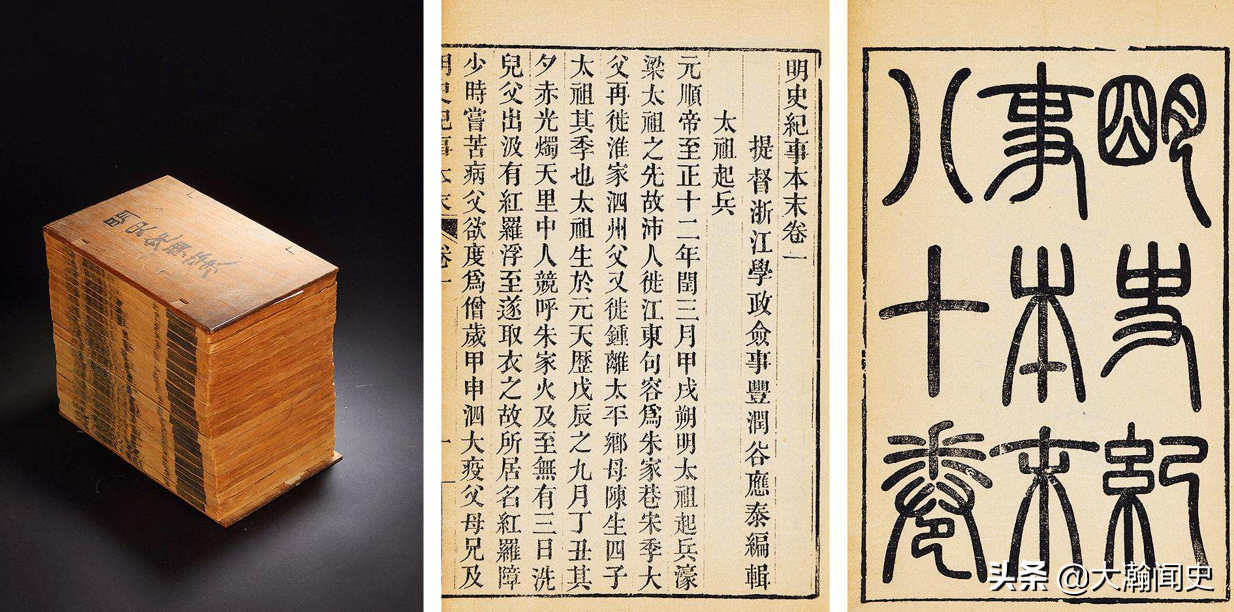 明史紀事本末
明史紀事本末卷一
提督浙江學政僉事豐潤谷應泰編輯
太祖起兵
元順帝至正十二年閏三月甲戌朔明太祖起兵濠
梁太祖之先故沛人徙江東句容爲朱家巷宋季大
父再徙淮家泗州父又徙鍾離太平鄉母陳生四子
太祖其季也太祖生於元天歷戊辰之九月丁丑其
夕赤光燭天里中人競呼朱家火及至無有三日洗
兒父出汲有紅羅浮至遂取衣之故所居名紅羅障
少時嘗苦病父欲度爲僧歲甲申泗大疫父母兄及
明史紀
事本末
八十卷
头条 @大瀚闻史